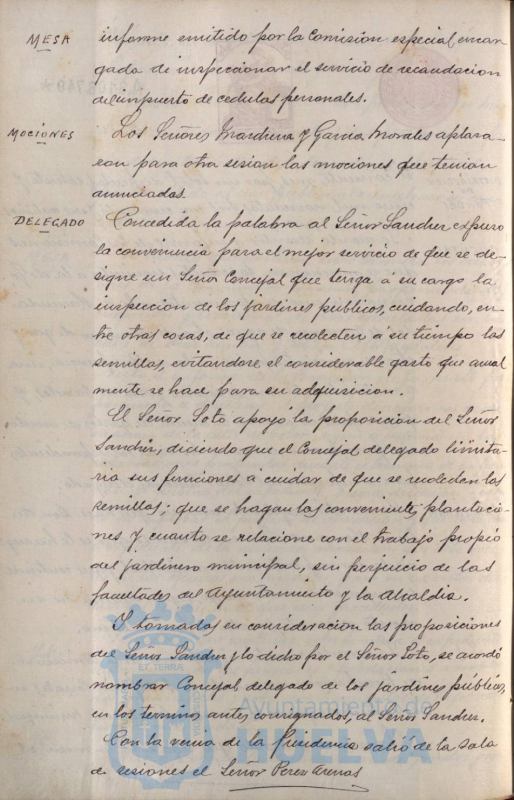 MESA
informe emitido por la Comisión especial encar-
gada de inspeccionar el servicio de recaudacion
del impuesto de cedulas personales.
MOCIONES
Los Señores Marchena y Garcia Morales aplaza-
ron para otra sesion las mociones que tenian
anunciadas.
DELEGADO
Concedida la palabra al Señor Sanchez expuso
la conveniencia para el mejor servicio de que se de-
signe un Señor Concejal que tenga á su cargo la
inspeccion de los jardines públicos, cuidando, en-
tre otras cosas, de que se recolecten á su tiempo las
semillas, evitandose el considerable gasto que anual
mente se hace para su adquisicion.
El Señor Soto apoyó la proposicion del Señor
Sanchez, diciendo que el Concejal delegado limita-
ria sus funciones á cuidar de que se recolecten las
semillas; que se hagan las convenientes plantacio-
nes y cuanto se relacione con el trabajo propio
del jardinero municipal, sin perjuicio de las
facultades del Ayuntamiento y la Alcaldia.
Y tomadas en consideracion las proposiciones
del Señor Sanchez y lo dicho por el Señor Soto, se acordó
nombrar Concejal delegado de los jardines públicos,
en los terminos antes consignados, al Señor Sanchez.
Con la venia de la Presidencia salió de la sala
de sesiones el Señor Perez Arenas
Ayuntamiento de
HUELVA